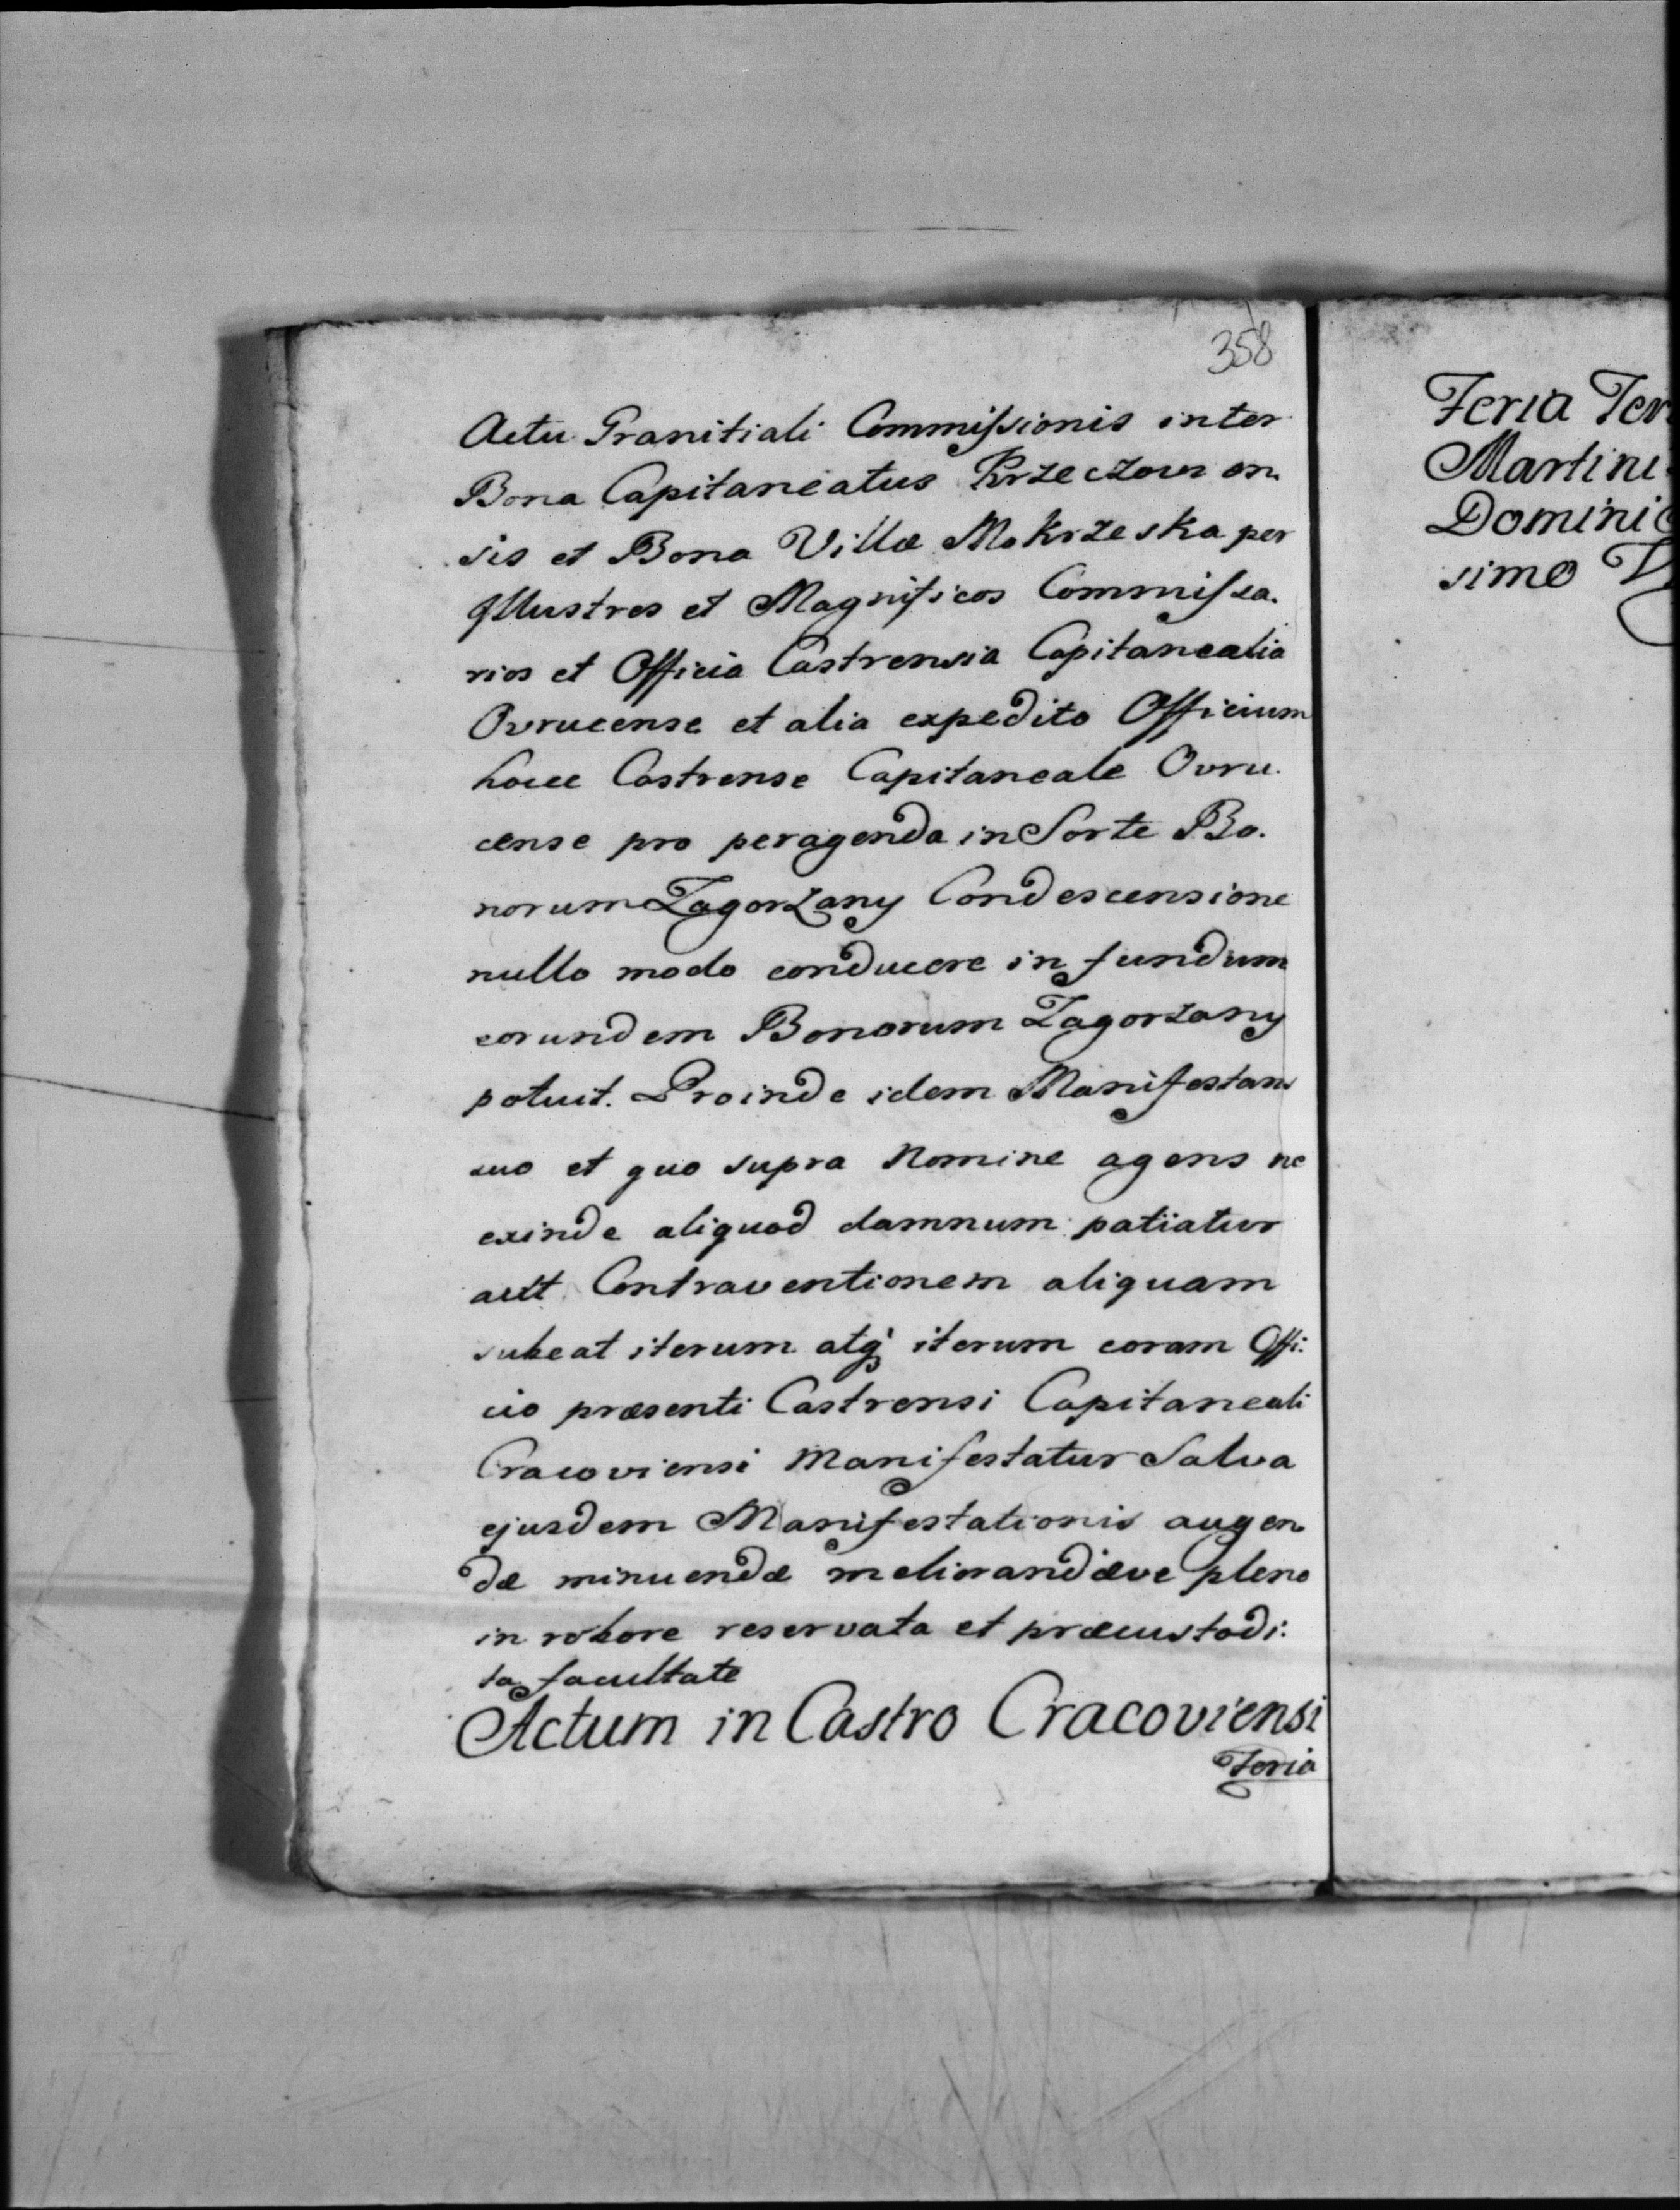 358
Actu Granitiali Commissionis inter
Bona Capitaneatus Krzeczovien
sis et Bona Villæ Mokrzeska per
Illustres et Magnificos Commissa.
rios et Officia Castrensia Capitanealia
Ovrucense et alia expedito Officium
hocce Castrense Capitaneale Ovru.
cense pro peragenda in Sorte Bo.
norum Zagorzany Condescensione
nullo modo conducere in fundum
eorundem Bonorum Zagorzany
potuit. Proinde idem Manifestans
suo et quo supra Nomine agens ne
exinde aliquod damnum patiatur
aut Contraventionem aliquam
subeat iterum atq iterum coram Offi:
cio præsenti Castrensi Capitaneali
Cracoviensi Manifestatur Salva
ejusdem Manifestationis augen
dæ minuendæ meliorandæve pleno
in robore reservata et præcustodi:
ta facultate
Actum in Castro Cracoviensi
Feria
Feria Ter
Martini
Dominic
simo